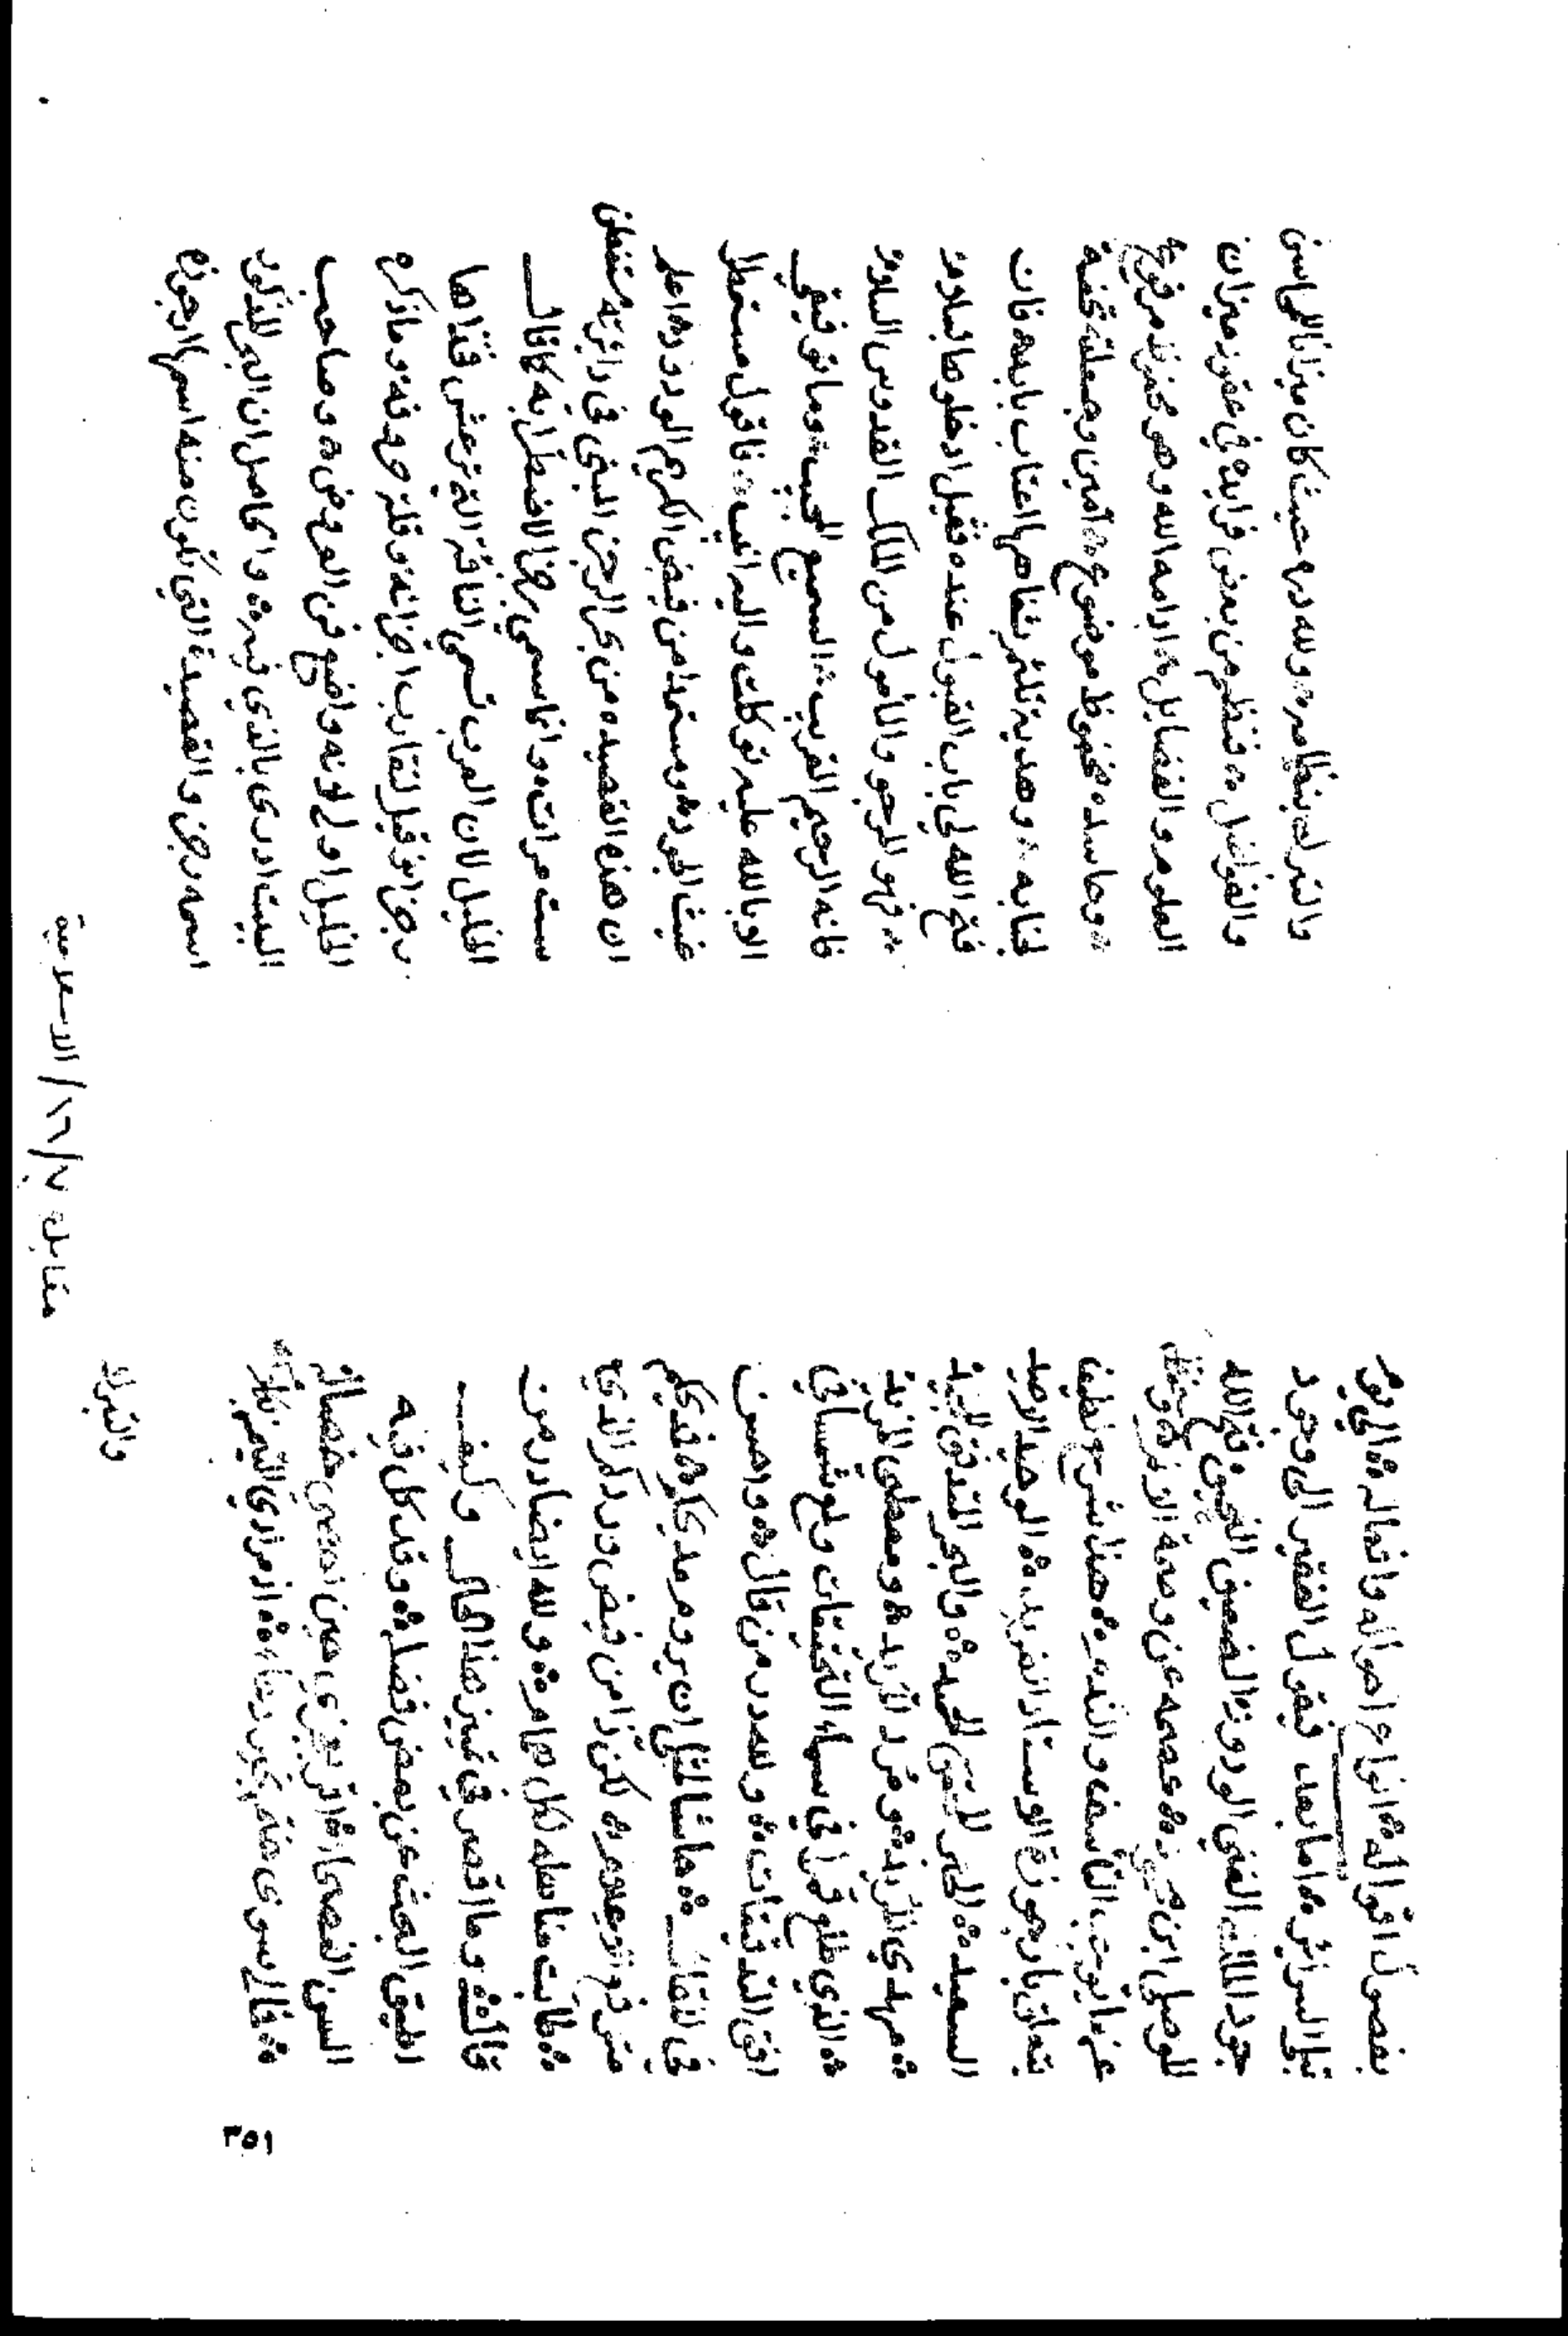 بفصول اقواله ۞ انواع احواله وافعاله ۞ الى يوم
تبلى السرائر ۞ اما بعد فيقول الفقير الى وجود
جود الملك الغني الودود الضعيف النحيف فتح الله
الموصلي ابن ۞ عصمه عن وصمة
عن التأسف والندم ۞ هذا شرح لطيف
يتعلق بارجوزة الاوستاد الفريد ۞ الوحيد الاوحد
السعيد ۞ الحبر المتقن المجيد ۞ والبحر المتدفق المديد
۞ مهدي المريد ۞ ومرد المريد ۞ ومعطي المزيد
۞ الذي طلع قمرا في سماء التحقيقات ولمع شمسا في
افق التدقيقات ۞ ولله در من قال ۞ واحسن
في المقال ۞ حاشا لمثلي ان يروم مديحكم ۞ فمديحكم
متن لكن ذا من فيض در دركم الذي
۞ طابت مناهله لكل صادر ۞ ولله ايضا در من
قال ۞ وما اقصر في تمييز هذا الحال وكيف
اطيق البحث عن بعض فضله ۞ وقد كل فيه
السن الفصحاء ۞ حين احصى خصاله
۞ فقال سوى هذا ۞ اذ مرادي التيمن بذكره
والتبرك
والتبرك بنظامه ۞ ولله دره حيث كان ميزانا للمحاسن
والفواضل ۞ فنظم من بعض فرايده في عقود ميزان
العلوم والفضايل ۞ ادامه الله وهو محفوظ مرفوع
۞ وحاسده محفوظ موضوع ۞ آمين وجعلته تحفة
لجنابه ۞ وهدية تلثم شفاهها اعتاب بابه ۞ فان
فتح الله لي باب القبول عنده فقيل ادخلوها بسلام
۞ فهو المرجو والمأمول من الملك القدوس السلام
فانه الرحيم القريب ۞ السميع المجيب ۞ وما توفيقي
الا بالله عليه توكلت واليه انيب ۞ فاقول مستمطرا
غيث الجود ۞ ومستمدا من فيض الكريم الودود ۞ اعلم
ان هذه القصيده من بحر الرجز المبني في دائرته مستفعلن
ست مرات ۞ وانما سمي رجزا لاضطرابه كما قال
الخليل لان العرب تسمي الناقة التي ترعش فخذاها
رجزا او قيل لتقارب اجزائه وقلة حروفه وما ذكره
الخليل اولى لانه واضع فن العروض ۞ وصاحب
البيت ادرى بالذي فيه ۞ والحاصل ان البحر المذكور
اسمه رجز والقصيدة التي تكون منه اسمها ارجوزه
مقابلة ١٦/٧ الاسعدية
٣٥١